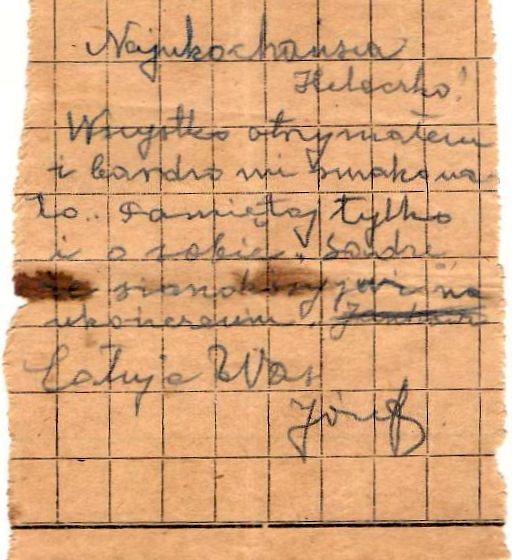 Najukochańsza
Heleczko!
Wszystko otrzymałem
i bardzo mi smakowa-
ło.. Pamiętaj tylko
i o sobie, Sądzę
że sianokosy już na
ukończeniu.
Całuję Was
Józef